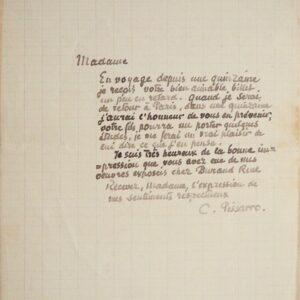 Madame
En voyage depuis une quinzaine
je reçois votre bien aimable billet
un peu en retard. quand je serai
de retour à Paris, dans une quinzaine
j'aurai l'honneur de vous en prévenir,
votre fils pourra me porter quelques
études, je me ferai un vrai plaisir de
lui dire ce que j'en pense.
Je suis très heureux de la bonne im-
pression que vous avez eue de mes
oeuvres exposées chez Durand Ruel
Recevez, Madame, l'expression de
mes sentiments respectueux
C. Pissarro.